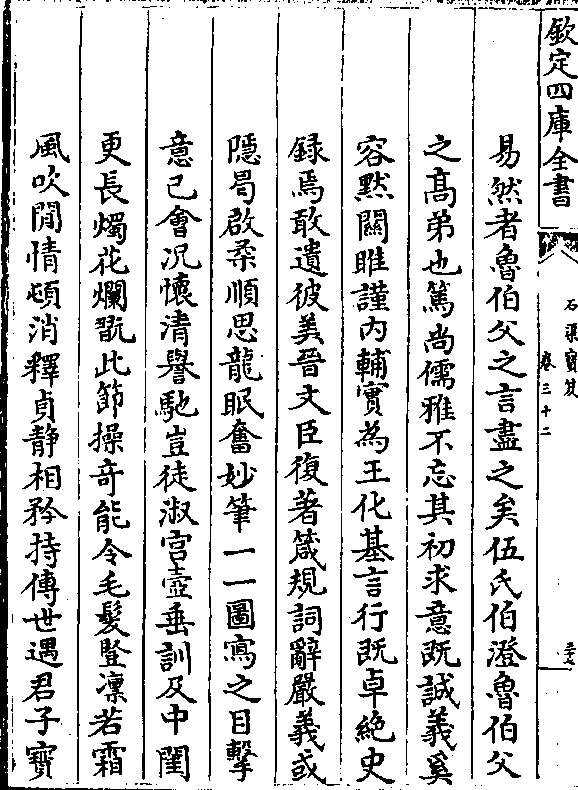 欽定四庫全書
石渠寶笈
卷三十二
易然者魯伯父之言盡之矣伍氏伯澄魯伯父
之高弟也篤尚儒雅不忘其初求意既誠義奚
容黙闗雎謹内輔實為王化基言行既卓絶史
録焉敢遺彼美晉文臣復著箴規詞辭嚴義或
隱曷啟柔順思龍眠奮妙筆一一圖寫之目擊
意已會況懷清譽馳豈徒淑宫壼垂訓及中閨
更長燭花爛翫此節操奇能令毛髮豎凛若霜
風吹閒情頓消釋貞静相矜持傳世遇君子寳